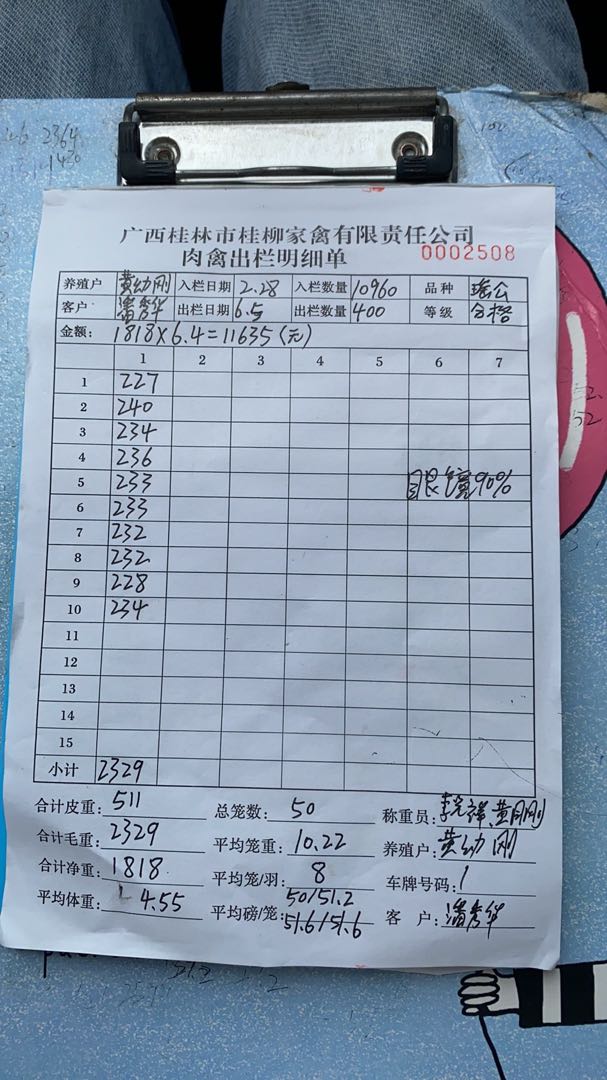 广西桂林市桂柳家禽有限责任公司
肉禽出栏明细单 0002508
养殖户 黄幼刚 入栏日期 2.28 入栏数量 10960 品种 瑶公
客户 潘秀华 出栏日期 6.5 出栏数量 400 等级 合格
金额： 1818×6.4=11635(元)
1 2 3 4 5 6 7
1 227
2 240
3 234
4 236
5 233 眼镜90%
6 233
7 232
8 232
9 228
10 234
11
12
13
14
15
小计 2329
合计皮重： 511 总笼数： 50 称重员：
合计毛重： 2329 平均笼重： 10.22 养殖户： 黄幼刚
合计净重： 1818 平均笼/羽： 8 车牌号码： 1
平均体重： 4.55 平均磅/笼： 50/51.2 客 户： 潘秀华
51.6/51.6